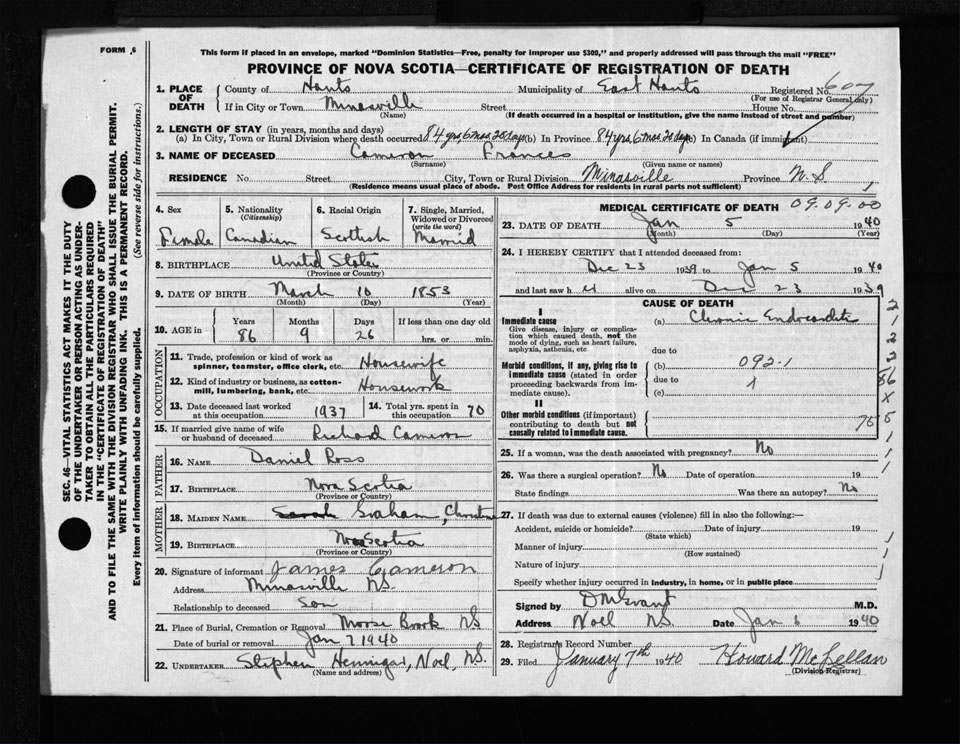 FORM 6
This form if placed in an envelope, marked "Dominion Statistics—Free, penalty for improper use $300," and properly addressed will pass through the mail "FREE"
PROVINCE OF NOVA SCOTIA—CERTIFICATE OF REGISTRATION OF DEATH
SEC. 46—VITAL STATISTICS ACT MAKES IT THE DUTY
OF THE UNDERTAKER OR PERSON ACTING AS UNDER-
TAKER TO OBTAIN ALL THE PARTICULARS REQUIRED
IN THE "CERTIFICATE OF REGISTRATION OF DEATH"
AND TO FILE THE SAME WITH THE DIVISION REGISTRAR WHO SHALL ISSUE THE BURIAL PERMIT.
WRITE PLAINLY WITH UNFADING INK. THIS IS A PERMANENT RECORD.
Every item of information should be carefully supplied. (See reverse side for instructions.)
1. PLACE OF DEATH County of Hants Municipality of East Hants Registered No. 607
(For use of Registrar General only)
If in City or Town Minasville Street House No.
(Name) (If death occurred in a hospital or institution, give the name instead of street and number)
2. LENGTH OF STAY (in years, months and days)
(a) In City, Town or Rural Division where death occurred 84 yrs, 6 mos, 20 days (b) In Province 84 yrs, 6 mos 20 days (c) In Canada (if immigrant)
3. NAME OF DECEASED Cameron Frances
(Surname) (Given name or names)
RESIDENCE No. Street City, Town or Rural Division Minasville Province N.S
(Residence means usual place of abode. Post Office Address for residents in rural parts not sufficient) 1
4. Sex Female
5. Nationality (Citizenship) Canadian
6. Racial Origin Scottish
7. Single, Married, Widowed or Divorced (write the word) Married
8. BIRTHPLACE United States
(Province or Country)
9. DATE OF BIRTH March 10 1853
(Month) (Day) (Year)
10. AGE in Years 86 Months 9 Days 26 If less than one day old hrs. or min.
OCCUPATION
11. Trade, profession or kind of work as spinner, teamster, office clerk, etc. Housewife
12. Kind of industry or business, as cotton-mill, lumbering, bank, etc. Housework
13. Date deceased last worked at this occupation 1937
14. Total yrs. spent in this occupation 70
15. If married give name of wife or husband of deceased Richard Cameron
FATHER
16. NAME Daniel Ross
17. BIRTHPLACE Nova Scotia
(Province or Country)
MOTHER
18. MAIDEN NAME Sarah Graham, Christine
19. BIRTHPLACE Nova Scotia
(Province or Country)
20. Signature of informant James Cameron
Address Minasville N.S.
Relationship to deceased Son
21. Place of Burial, Cremation or Removal Moose Brook N.S
Date of burial or removal Jan 7 1940
22. UNDERTAKER Stephen Hennigar, Noel, N.S.
(Name and address)
MEDICAL CERTIFICATE OF DEATH 09.09.00
23. DATE OF DEATH Jan 5 1940
(Month) (Day) (Year)
24. I HEREBY CERTIFY that I attended deceased from:
Dec 23 1939 to Jan 5 1940
and last saw h er alive on Dec 23 1939
CAUSE OF DEATH
I
Immediate cause
Give disease, injury or complication which caused death, not the mode of dying, such as heart failure, asphyxia, asthenia, etc.
(a) Chronic Endocarditis
due to
Morbid conditions, if any, giving rise to immediate cause (stated in order proceeding backwards from immediate cause).
(b) 092-1
due to 1
(c)
II
Other morbid conditions (if important) contributing to death but not causally related to immediate cause.
25. If a woman, was the death associated with pregnancy? No
26. Was there a surgical operation? No Date of operation 19
State findings Was there an autopsy? No
27. If death was due to external causes (violence) fill in also the following:—
Accident, suicide or homicide? Date of injury 19
(State which)
Manner of injury
(How sustained)
Nature of injury
Specify whether injury occurred in industry, in home, or in public place
Signed by D M Grant M.D.
Address Noel N.S. Date Jan 6 1940
28. Registrar's Record Number
29. Filed January 7th 1940 Howard McLellan
(Division Registrar)